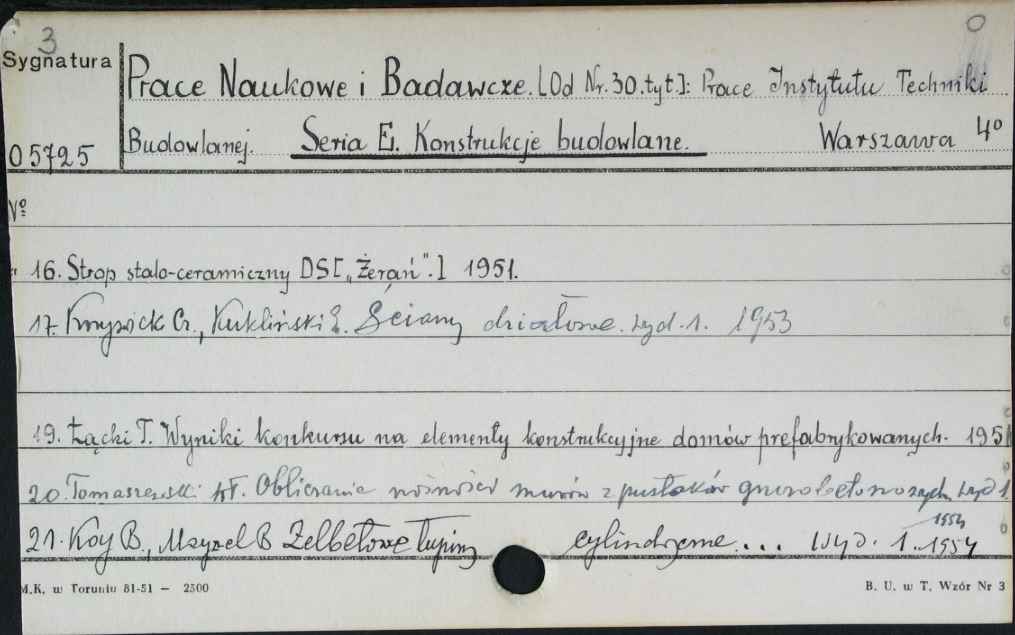 3 0
Sygnatura Prace Naukowe i Badawcze. [Od Nr. 30. tyt.]: Prace Instytutu Techniki
05725 Budowlanej. Seria E. Konstrukcje budowlane. Warszawa 4º
Nº
" 16. Strop stalo-ceramiczny DS [„Żerań".] 1951.
17. G., Kukliński Z. Ściany działowe. Wyd. 1. 1953
19. Łącki T. Wyniki konkursu na elementy konstrukcyjne domów prefabrykowanych. 1951
20. Tomaszewski W. Obliczanie nośności murów z pustaków gruzobetonowych. Wyd 1.
1954
21. Koy B., B Żelbetowe łupiny cylindryczne... Wyd. 1. 1954
M.K. w Toruniu 81-51 — 2500 B. U. w T. Wzór Nr 3